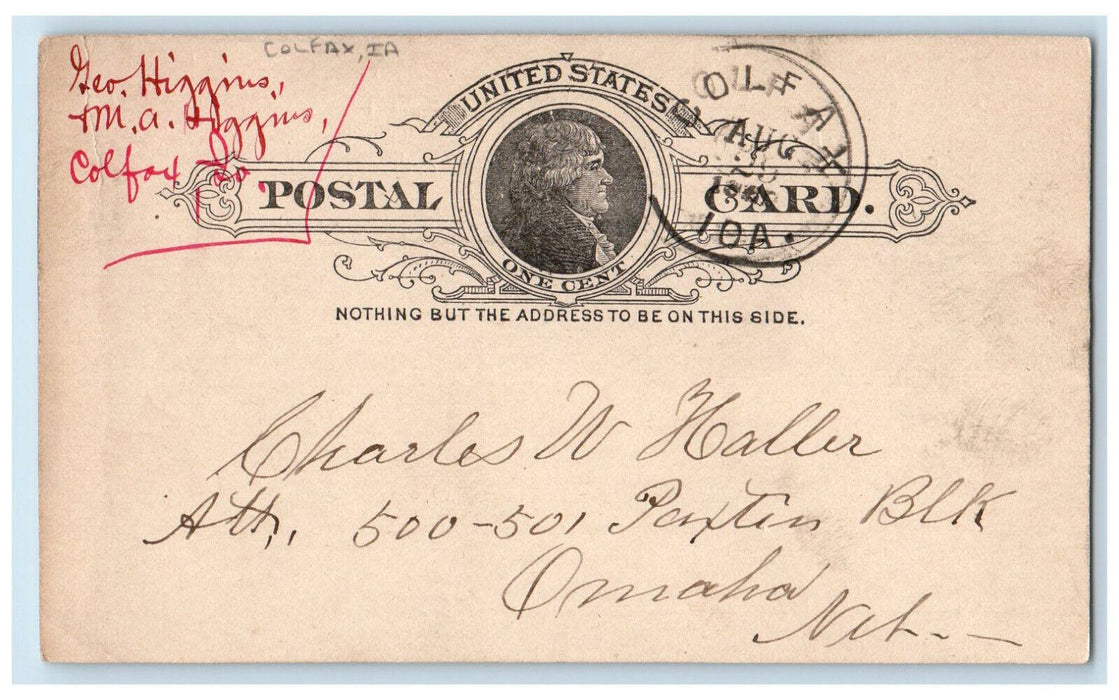 COLFAX, IA
Geo. Higgins,
M. A. Higgins,
Colfax Io.
UNITED STATES
POSTAL CARD.
ONE CENT
NOTHING BUT THE ADDRESS TO BE ON THIS SIDE.
COLFAX
AUG
IOA.
Charles W Haller
Att., 500-501 Paxtin Blk
Omaha
Neb.